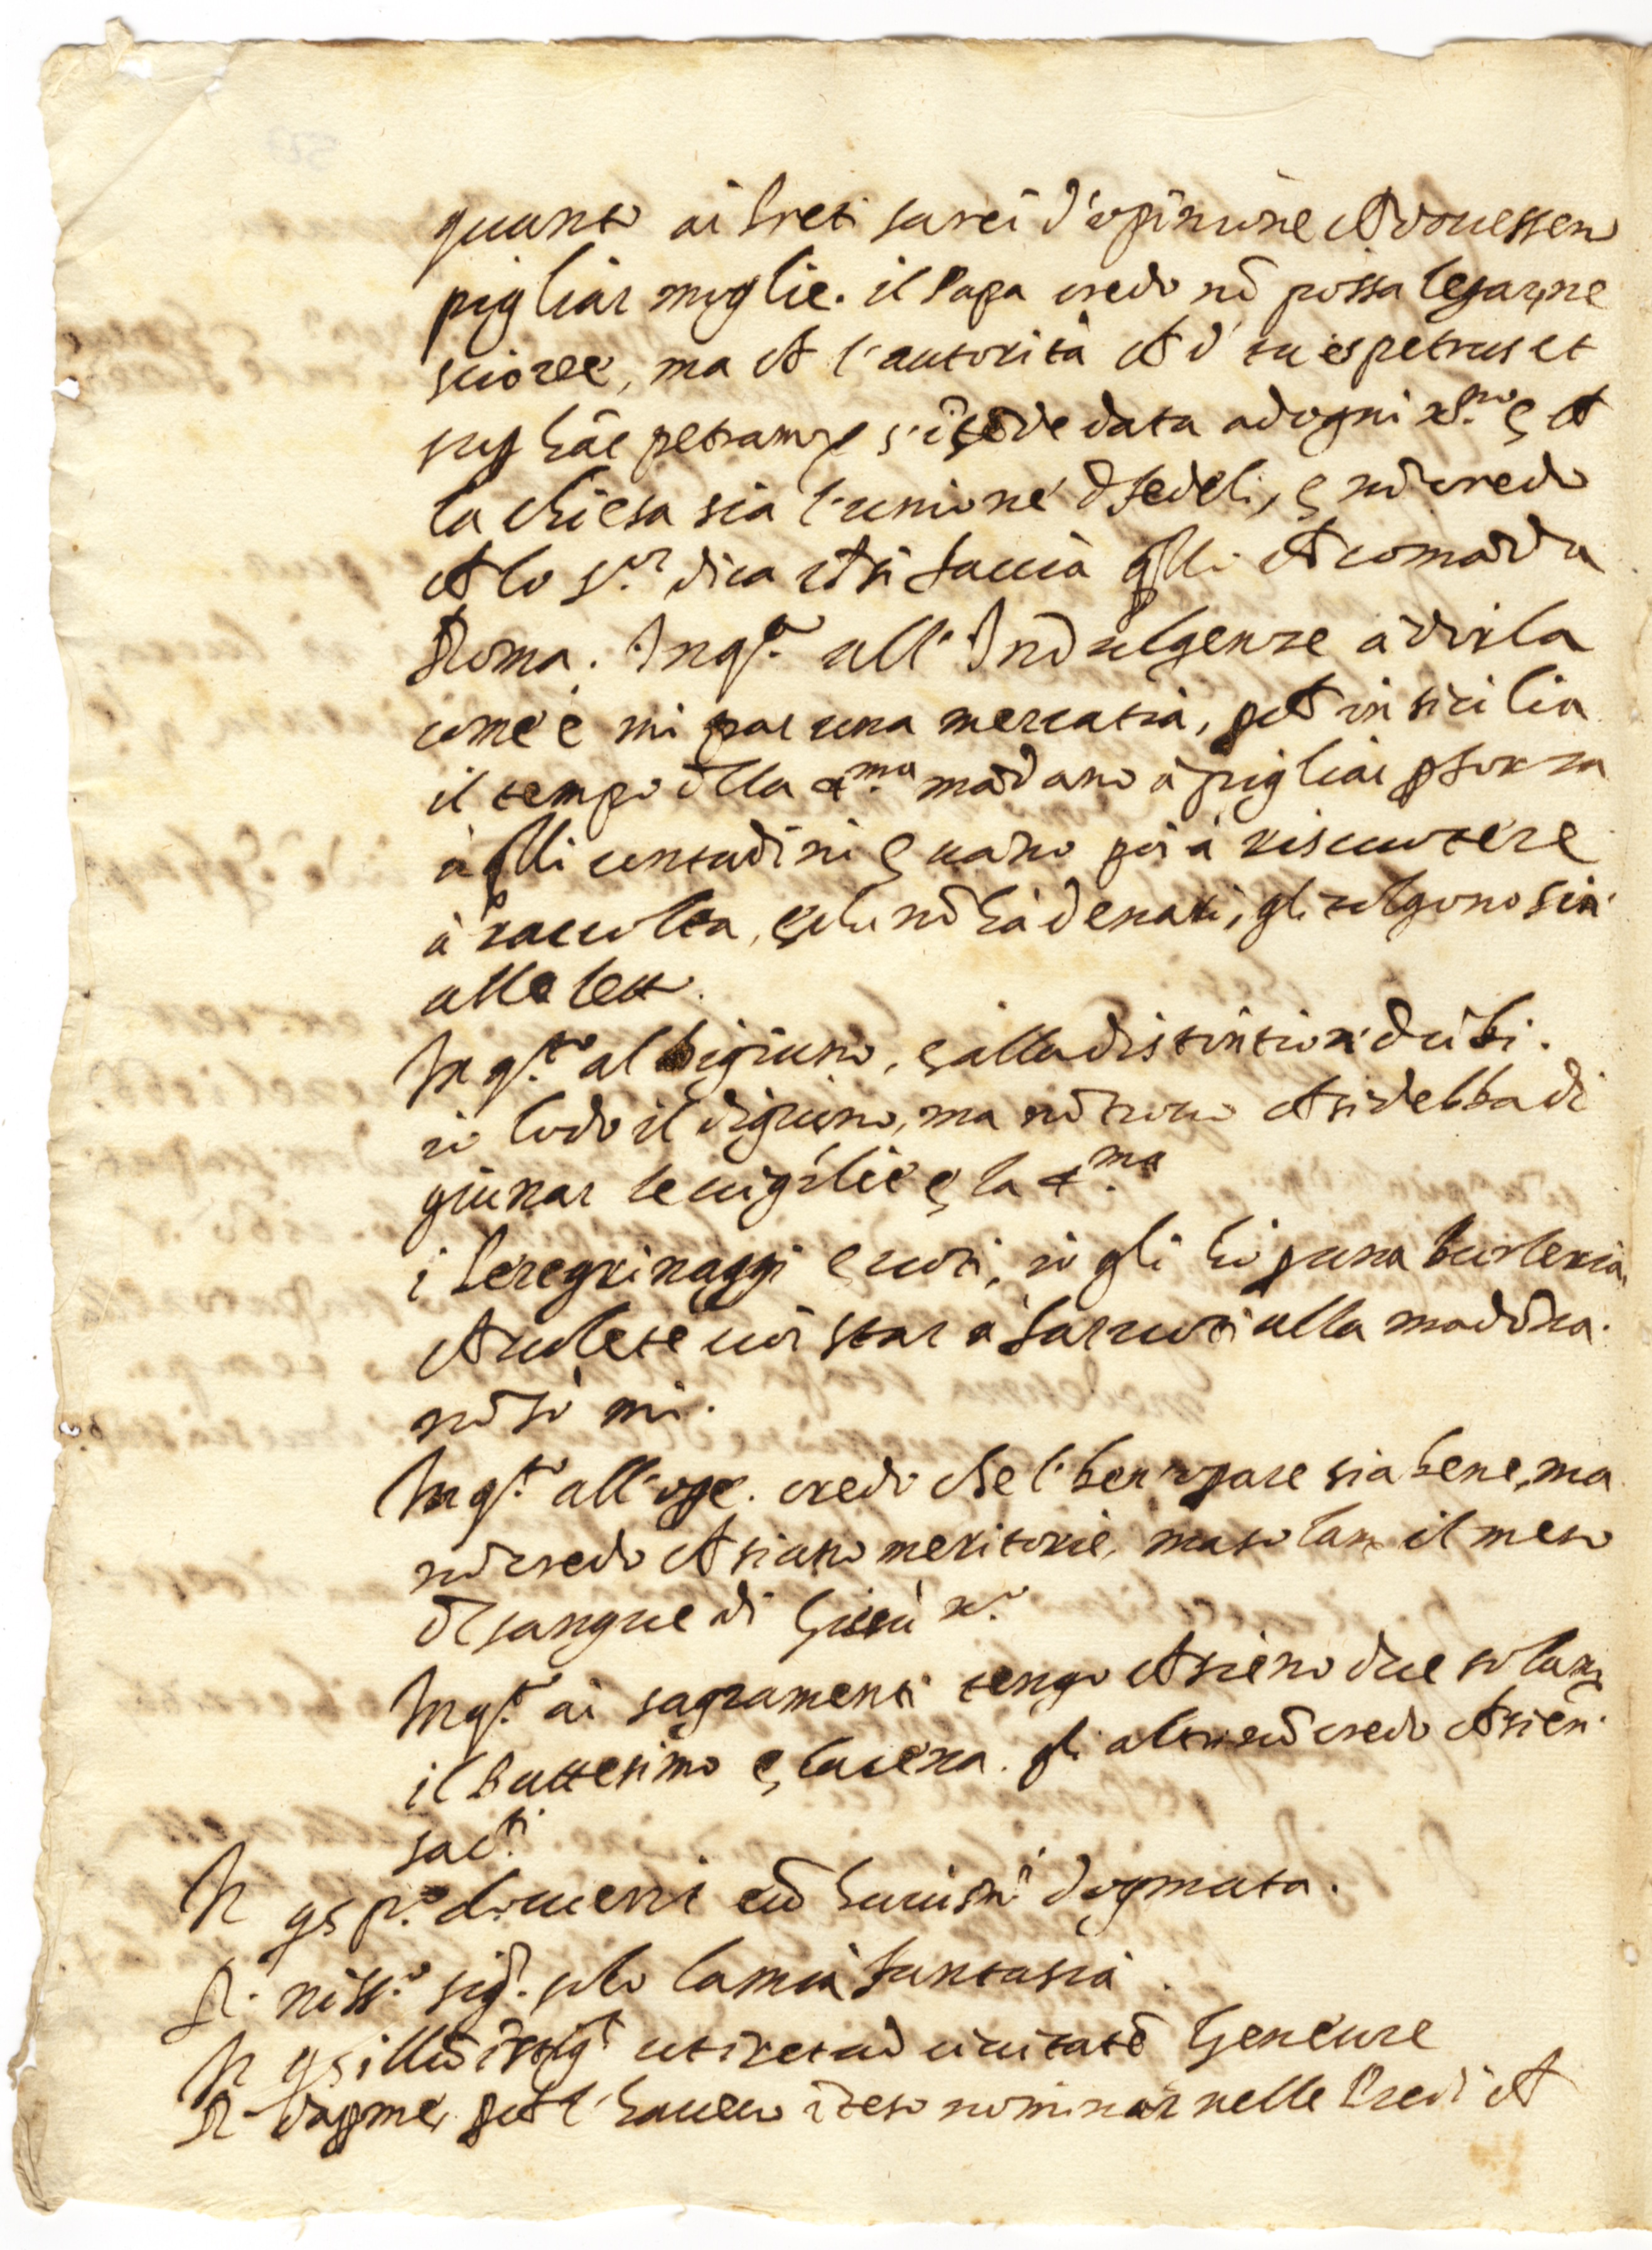 quanto ai Preti sarei d'opinione ch douessero
pigliar moglie. il Papa credo nō possa legar, ne
sciorre, ma ch l'autorità ch d' tu es petrus et
sup hāc petram s'ītēde data ad ogni xp.no e ch
la chiesa sia l'unione d fedeli, e nō credo
ch lo s.r dica ch si faccia q̄lli ch comāda
Roma. Inq.to all'Indulgenze à dirla
com'è mi par una mercatia, pch in sicilia
il tempo dlla 4.ma mādano à pigliar p forza
à q̄lli contadini e uāno poi à riscuotere
à raccolta, e chi nō hà denari, gli tolgono sin'
alle lett.
Inq.to al digiuno, e alla distintion' d cibi.
io lodo il digiuno, ma nō trouo ch si debba di
giunar le uigilie e la 4.ma
i Peregrinaggi e uoti, io gli hò p una burleria,
ch uolete uoi star à far uoti alla madōna.
nō sò mi.
Inq.to all'ope. credo che l'ben opare sia bene, ma
nō credo ch siano meritorie, ma solam il mero
dl sangue di Giesù x.o
Inq.to ai sagramenti tengo ch sieno due solam
il Battesimo e la cena. gli altri nō credo ch sien'
sac.ti
In qs p.o docuerit eū huiusm.i dogmata.
R. niss.o sig.r solo la mia fantasia.
In qs illū īstig.t ut iret ad ciuitatē Geneure
R. dapme, pch l'haueuo īteso nominar nelle Predi ch